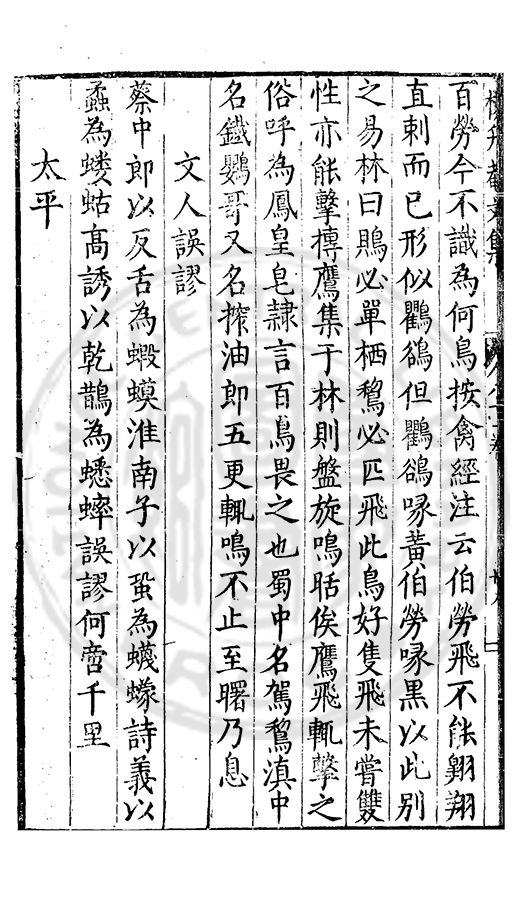 楊升菴文集
百勞今不識為何鳥按禽經注云伯勞飛不能翺翔
直刺而已形似鸜鵒但鸜鵒喙黄伯勞喙黑以此别
之易林曰鵙必單栖鵹必匹飛此鳥好隻飛未嘗雙
性亦能擊摶鷹集于林則盤旋鳴聒俟鷹飛輒擊之
俗呼為鳳皇皂隷言百鳥畏之也蜀中名駕鵹滇中
名鐵鸚哥又名搾油郎五更輒鳴不止至曙乃息
文人誤謬
蔡中郎以反舌為蝦蟆淮南子以蛩為蠛蠓詩義以
蟊為螻蛄高誘以乾鵲為蟋蟀誤謬何啻千里
太平